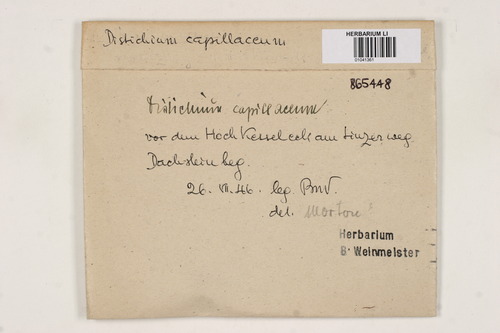 Distichium capillaceum
HERBARIUM LI
01041361
865448
Distichium capillaceum
vor dem Hoch Kesseleck am Linzer weg
Dachstein
26. VII. 46. leg.
det. Morton
Herbarium
B. Weinmeister